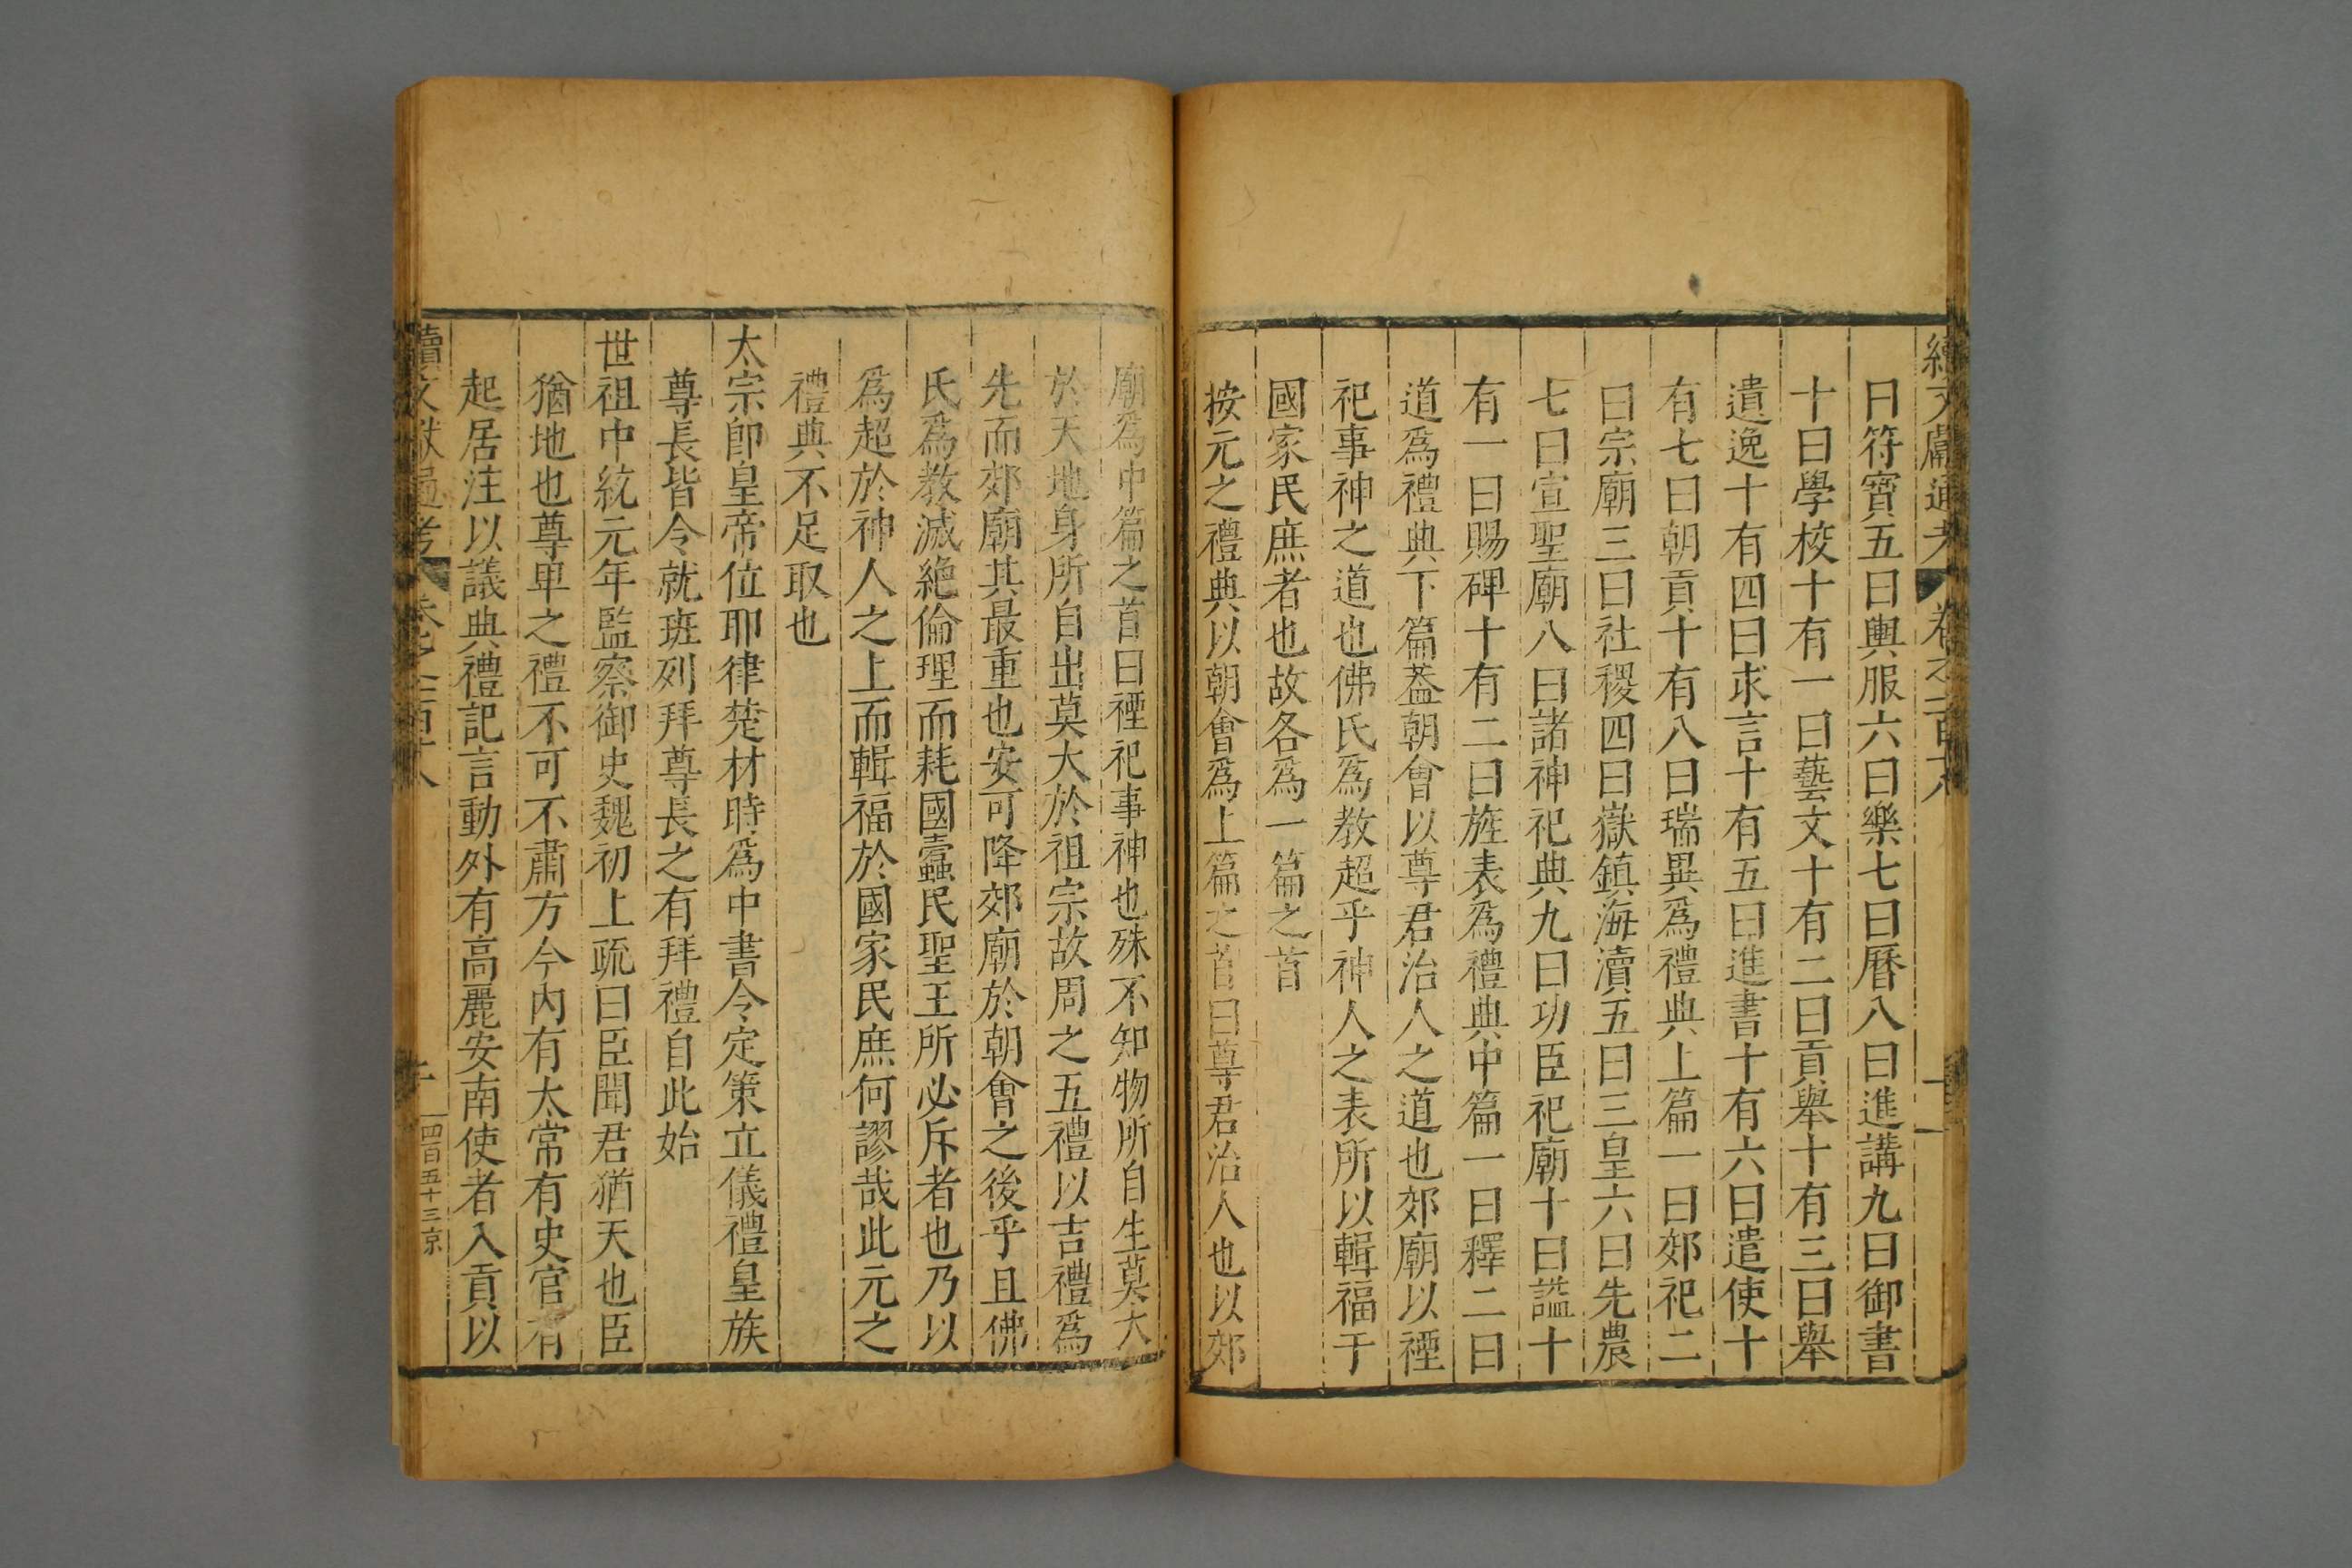 續文獻通考 卷之一百六
曰符寶五曰輿服六曰樂七曰曆八曰進講九曰御書
十曰學校十有一曰藝文十有二曰貢舉十有三曰舉
遺逸十有四曰求言十有五曰進書十有六曰遣使十
有七曰朝貢十有八曰瑞異爲禮典上篇一曰郊祀二
曰宗廟三曰社稷四曰嶽鎮海瀆五曰三皇六曰先農
七曰宣聖廟八曰諸神祀典九曰功臣祀廟十曰謚十
有一曰賜碑十有二曰旌表爲禮典中篇一曰釋二曰
道爲禮典下篇葢朝會以尊君治人之道也郊廟以禋
祀事神之道也佛氏爲教超乎神人之表所以輯福于
國家民庶者也故各爲一篇之首
按元之禮典以朝會爲上篇之首曰尊君治人也以郊
廟爲中篇之首曰禋祀事神也殊不知物所自生莫大
於天地身所自出莫大於祖宗故周之五禮以吉禮爲
先而郊廟其最重也安可降郊廟於朝會之後乎且佛
氏爲教滅絶倫理而耗國蠹民聖王所必斥者也乃以
爲超於神人之上而輯福於國家民庶何謬哉此元之
禮典不足取也
太宗卽皇帝位耶律楚材時爲中書令定策立儀禮皇族
尊長皆令就班列拜尊長之有拜禮自此始
世祖中統元年監察御史魏初上疏曰臣聞君猶天也臣
猶地也尊卑之禮不可不肅方今內有太常有史官有
起居注以議典禮記言動外有高麗安南使者入貢以
續文獻通考 四百五十三 京